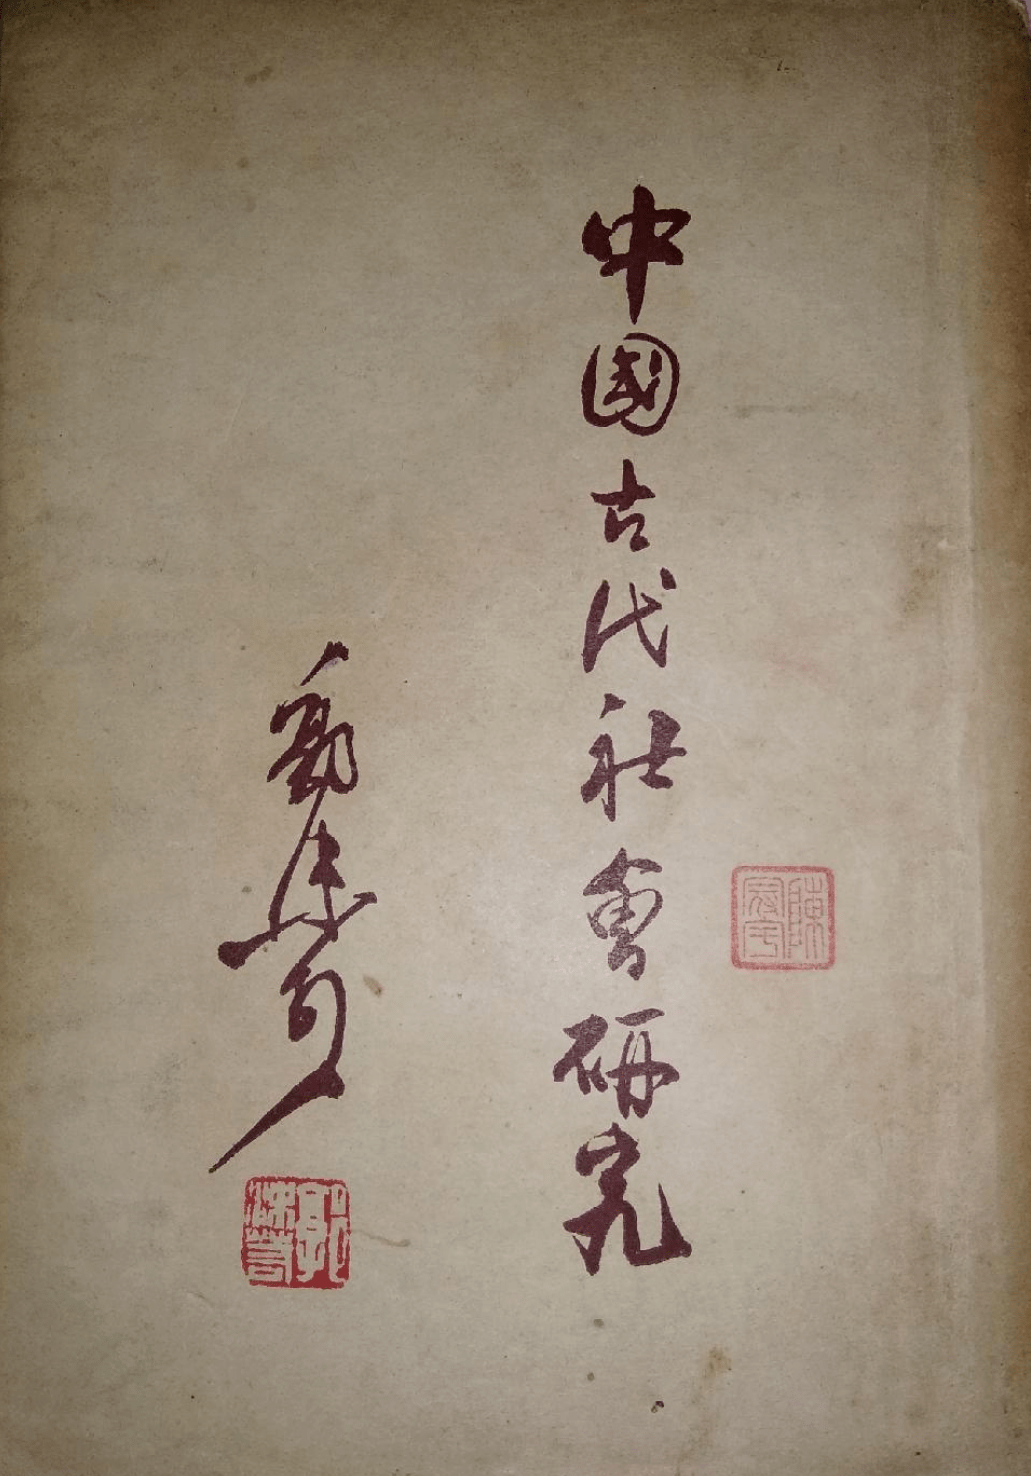 中國古代社會研究
郭沫若
郭沫若